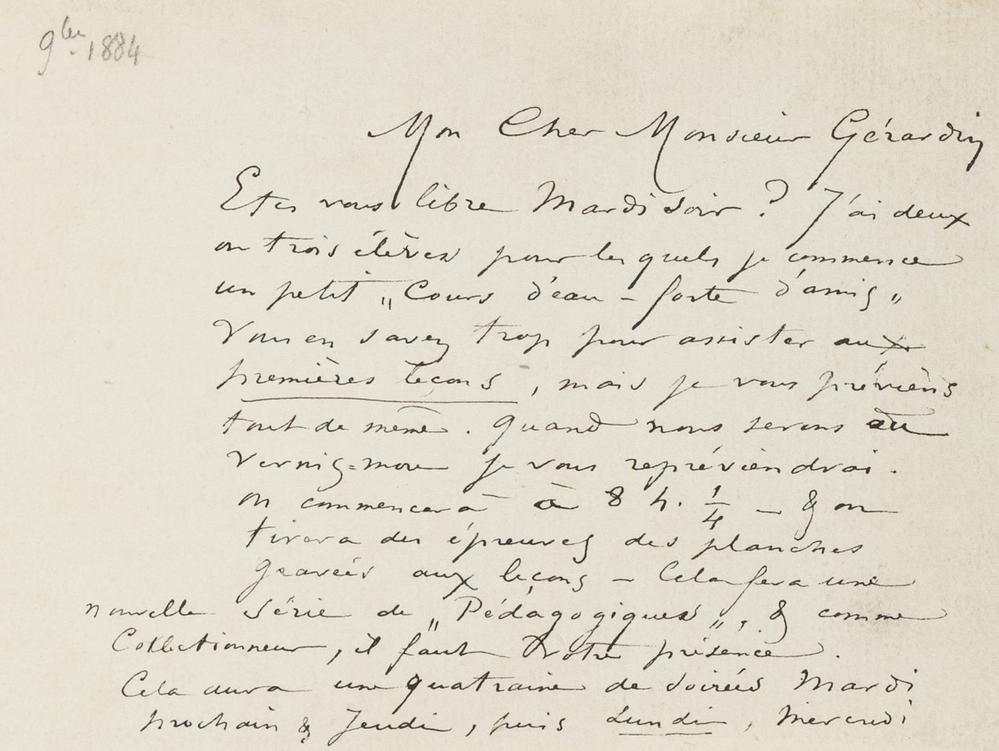 9bre 1884
Mon Cher Monsieur Gérardin
Etes vous libre Mardi soir ? J'ai deux
ou trois élèves pour lesquels je commence
un petit „Cours d'eau-forte d'amis„
Vous en savez trop pour assister aux
premières leçons, mais je vous préviens
tout de même. Quand nous serons au
Vernis-mou je vous repréviendrai.
On commencera à 8 h. 1/4 _ & on
tirera des épreuves des planches
gravées aux leçons _ Cela fera une
nouvelle série de „Pédagogiques„, & comme
Collectionneur, il faut votre présence.
Cela aura une quatraine de soirées Mardi
prochain & Jeudi, puis Lundi, Mercredi